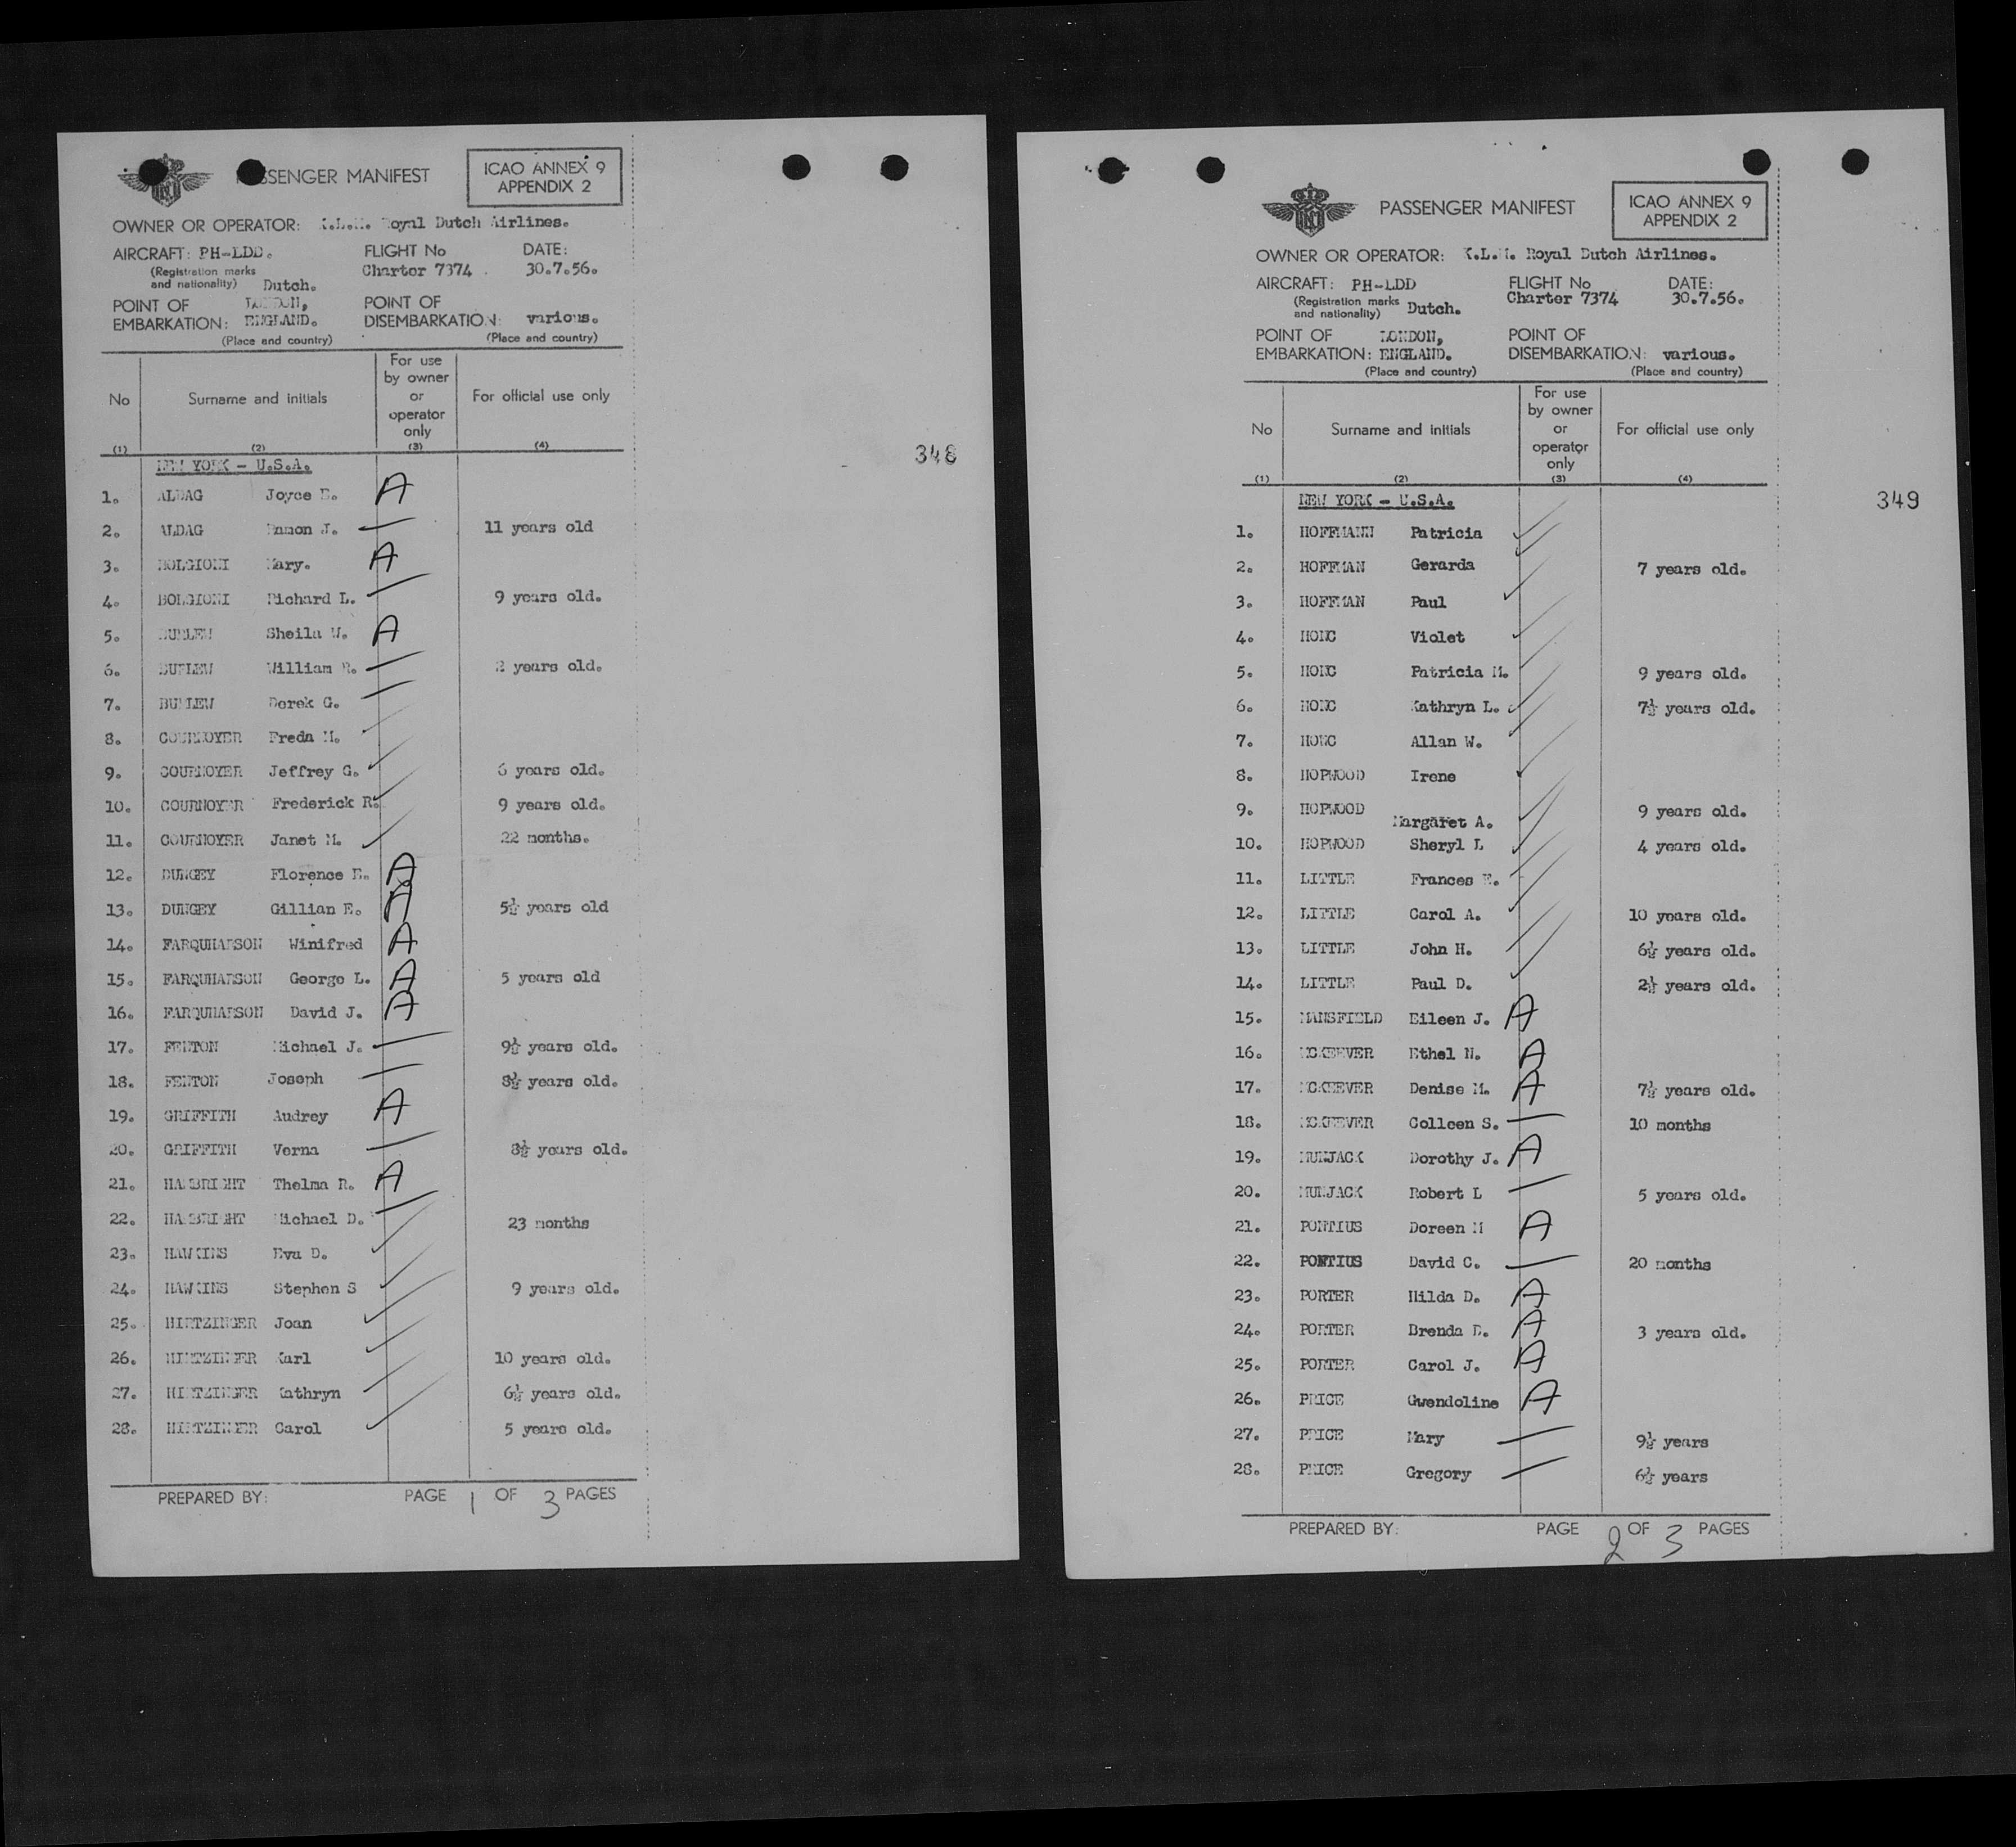 PASSENGER MANIFEST
ICAO ANNEX 9
APPENDIX 2
OWNER OR OPERATOR: K.L.M. Royal Dutch Airlines.
AIRCRAFT: PH-LDD. FLIGHT No DATE:
(Registration marks Charter 7374 30.7.56.
and nationality) Dutch.
POINT OF LONDON, POINT OF
EMBARKATION: ENGLAND. DISEMBARKATION: various.
(Place and country) (Place and country)
No Surname and initials For use by owner or operator only For official use only
(1) (2) (3) (4)
348
NEW YORK - U.S.A.
1. ALDAG Joyce E. A
2. ALDAG Damon J. 11 years old
3. BOLGIONI Mary. A
4. BOLGIONI Richard L. 9 years old.
5. BURLEW Sheila W. A
6. BURLEW William R. 2 years old.
7. BURLEW Derek G.
8. COURNOYER Freda M.
9. COURNOYER Jeffrey G. 6 years old.
10. COURNOYER Frederick R. 9 years old.
11. COURNOYER Janet M. 22 months.
12. DUNGEY Florence E. A
13. DUNGEY Gillian E. A 5½ years old
14. FARQUHARSON Winifred A
15. FARQUHARSON George L. A 5 years old
16. FARQUHARSON David J. A
17. FENTON Michael J. 9½ years old.
18. FENTON Joseph 8½ years old.
19. GRIFFITH Audrey A
20. GRIFFITH Verna 8½ years old.
21. HAMBRIGHT Thelma R. A
22. HAMBRIGHT Michael D. 23 months
23. HAWKINS Eva D.
24. HAWKINS Stephen S 9 years old.
25. HIRTZINGER Joan
26. HIRTZINGER Karl 10 years old.
27. HIRTZINGER Kathryn 6½ years old.
28. HIRTZINGER Carol 5 years old.
PREPARED BY: PAGE 1 OF 3 PAGES
PASSENGER MANIFEST
ICAO ANNEX 9
APPENDIX 2
OWNER OR OPERATOR: K.L.M. Royal Dutch Airlines.
AIRCRAFT: PH-LDD FLIGHT No DATE:
(Registration marks Charter 7374 30.7.56.
and nationality) Dutch.
POINT OF LONDON, POINT OF
EMBARKATION: ENGLAND. DISEMBARKATION: various.
(Place and country) (Place and country)
No Surname and initials For use by owner or operator only For official use only
(1) (2) (3) (4)
349
NEW YORK - U.S.A.
1. HOFFMANN Patricia
2. HOFFMAN Gerarda 7 years old.
3. HOFFMAN Paul
4. HONC Violet
5. HONC Patricia M. 9 years old.
6. HONC Kathryn L. 7½ years old.
7. HONC Allan W.
8. HOPWOOD Irene
9. HOPWOOD Margaret A. 9 years old.
10. HOPWOOD Sheryl L 4 years old.
11. LITTLE Frances E.
12. LITTLE Carol A. 10 years old.
13. LITTLE John H. 6½ years old.
14. LITTLE Paul D. 2½ years old.
15. MANSFIELD Eileen J. A
16. MCKEEVER Ethel N. A
17. MCKEEVER Denise M. A 7½ years old.
18. MCKEEVER Colleen S. 10 months
19. MUNJACK Dorothy J. A
20. MUNJACK Robert L 5 years old.
21. PONTIUS Doreen M A
22. PONTIUS David C. 20 months
23. PORTER Hilda D. A
24. PORTER Brenda D. A 3 years old.
25. PORTER Carol J. A
26. PRICE Gwendoline A
27. PRICE Mary 9½ years
28. PRICE Gregory 6½ years
PREPARED BY: PAGE 2 OF 3 PAGES